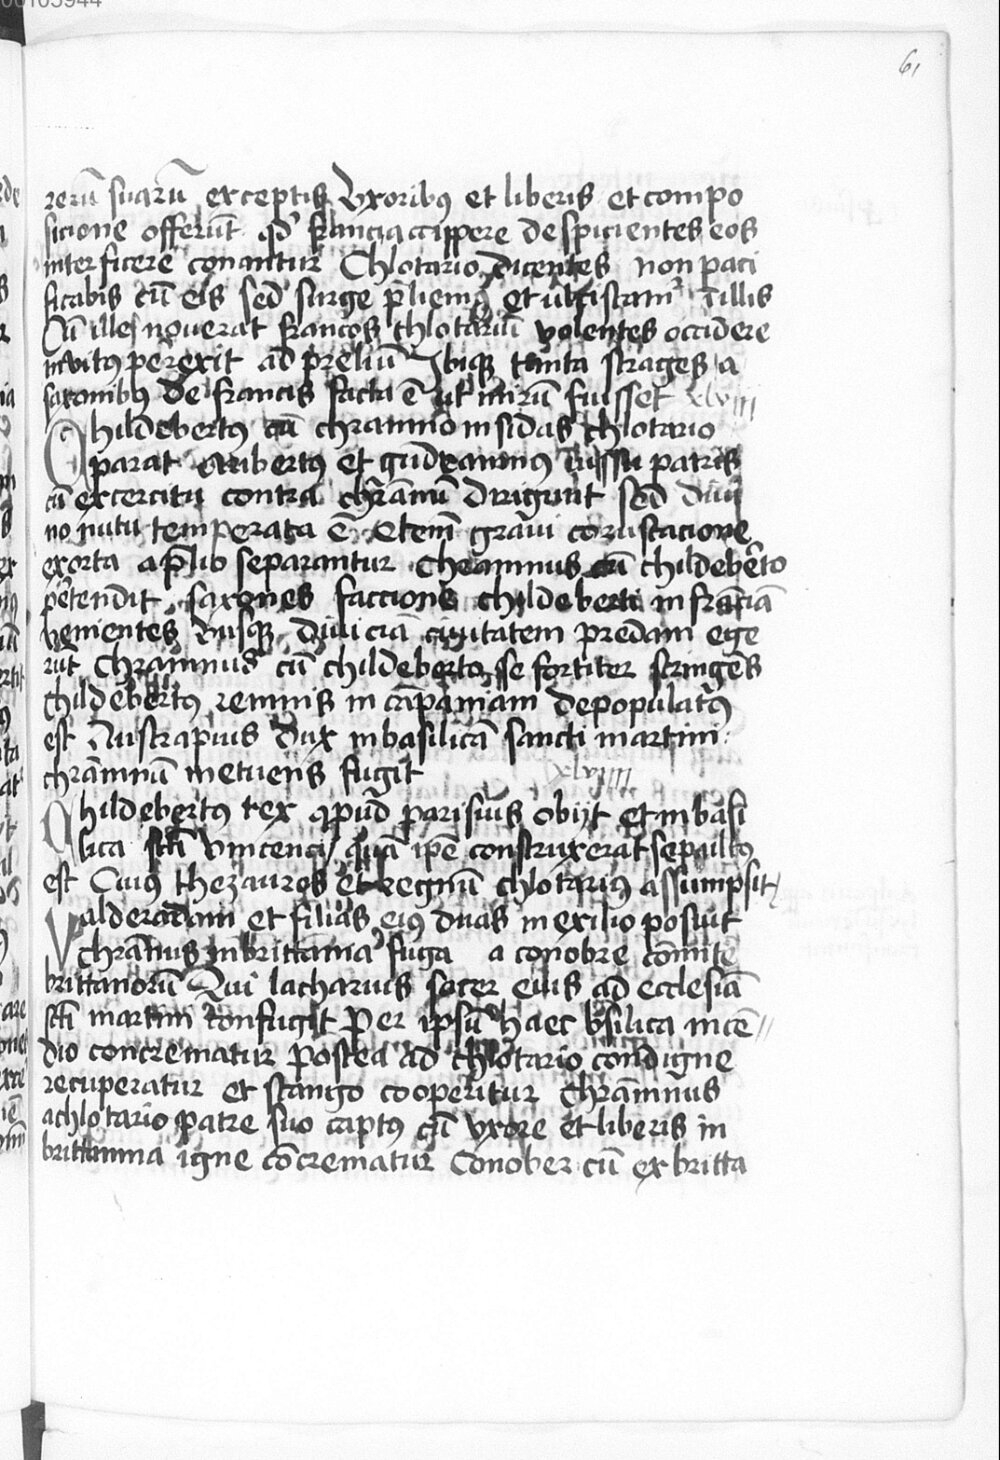 00103944
61
rerū suarū exceptis Uxoribꝰ et liberis et compo
sicione offerūt qd' francia accippere despicientes eos
interficere conantur Chlotario dicentes non paci
ficabis cū eis sed surge et illis
Cū ille noverat francos chlotariū volentes occidere
invitꝰ perexit ad preliū Ibiqꝫ tanta strages a
saxonibꝰ de francis facta ē ut mirū fuisset xlviij
Childebertꝰ cū chramno insidas chlotario
parat et gudramnꝰ iussu patris
cū excercitu contra chramū dirigunt sed divi
no nutu temperata ē Etem̄ gravi coruscacione
exorta a p̄lio separantur Chramnus cū childeberto
p̄tendit saxones faccione childeberti in franciā
venientes usqꝫ diuiciā civitatem predam ege
rūt Chramnus cū childeberto se fortiter stringēs
childebertꝰ remnis in cāpaniam depopulatꝰ
est Austrapius dux in basilicā sancti martini
chramnū metuens fugit xlviiij
Childebertꝰ rex apud parisius obijt et in basi
lica scti Vincenci quā ipē construxerat sepultꝰ
est Cuiꝰ thezauros et regnū chlotariꝰ assumpsit
Valderadam et filias eiꝰ duas in exilio posuit
chrānus in brittania fuga a conobre comite
brittanorū Qui lacharius socer eius ad ecclesiā
scti martini confugit Per ipsū haec basilica incē
dio concrematur postea ad chlotario condigne
recuperatur et stango cooperitur Chramnus
a chlotario patre suo captꝰ cū uxore et liberis in
brittannia igne cōcrematur Conober cū ex britta